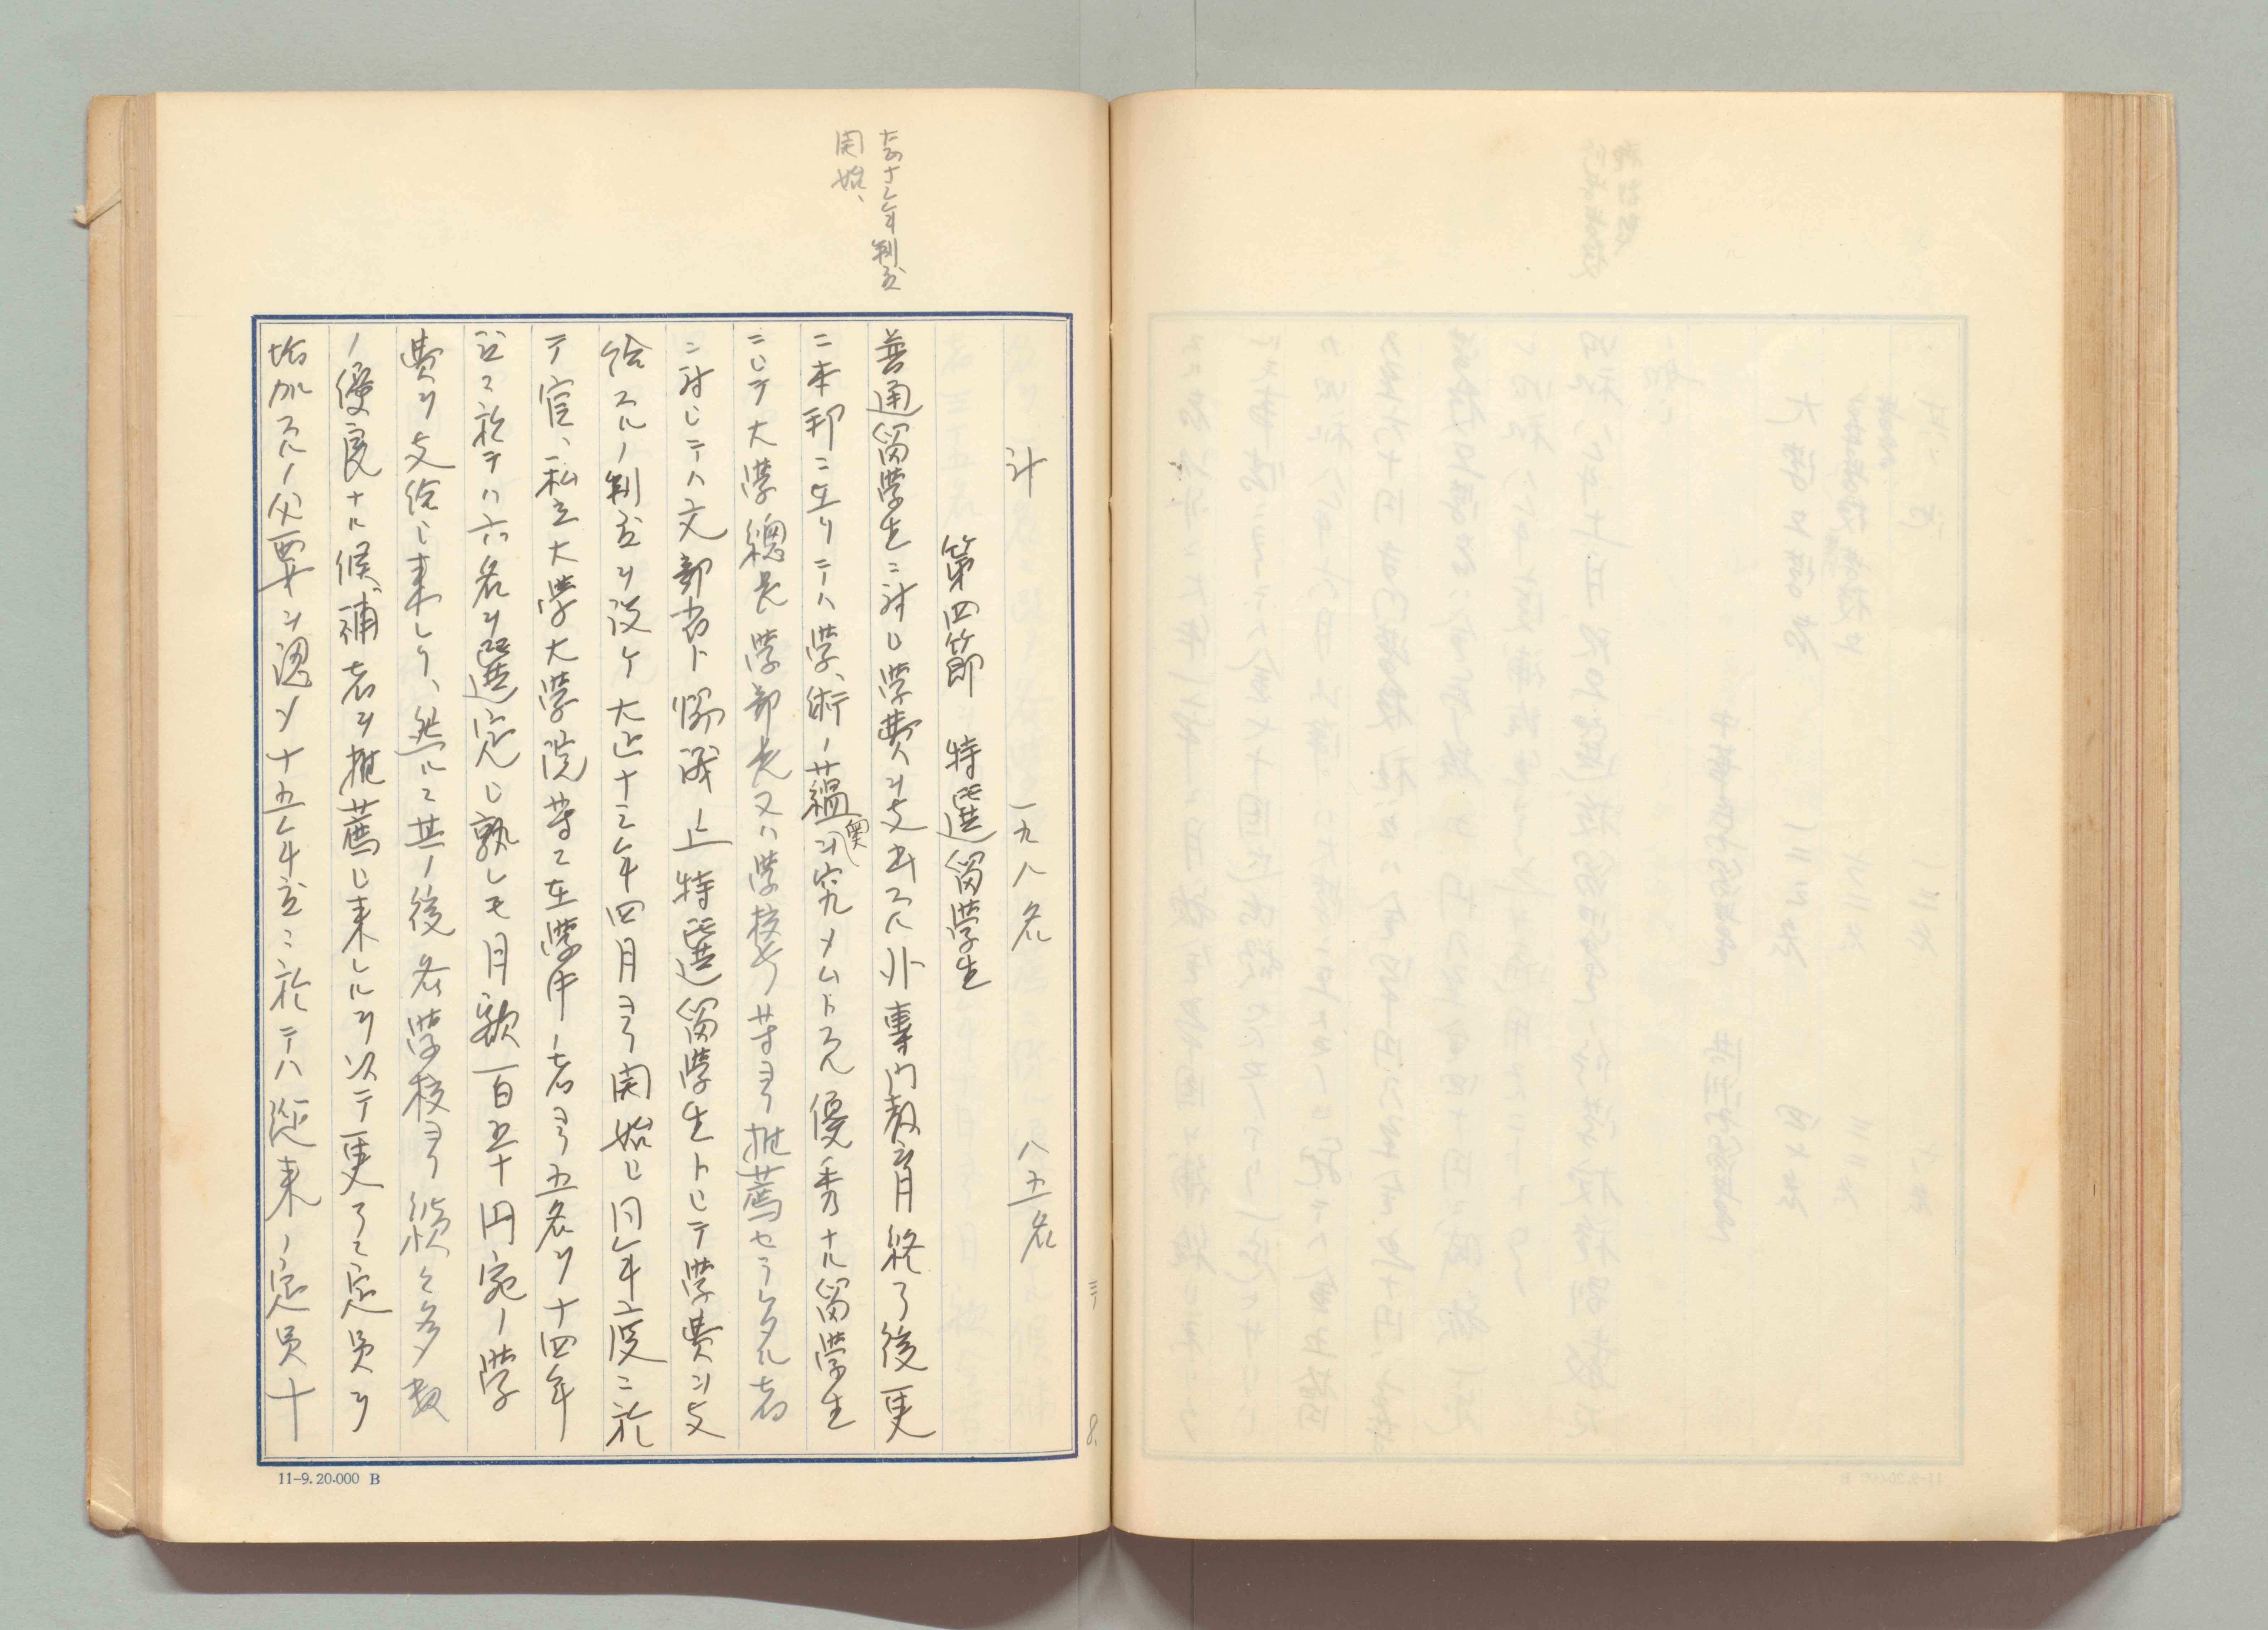 計　一九八名　八五名
第四節　特選留学生
普通留学生ニ対シ学費ヲ支出スル外専門教育終了後更
ニ本邦ニ在リテハ学、術ノ蘊奥ヲ究メムトスル優秀ナル留学生
ニシテ大学総長学部長又ハ学校長等ヨリ推薦セラレタル者
ニ対シテハ文部省ト協議ノ上特選留学生トシテ学費ヲ支
給スルノ制度ヲ設ケ大正十三年四月ヨリ開始シ同年度ニ於
テ官、私立大学大学院等ニ在学中ノ者ヨリ五名ヲ十四年
度ニ於テハ六名ヲ選定シ孰レモ月額百五十円宛ノ学
費ヲ支給シ来レリ、然ルニ其ノ後各学校ヨリ続々多数
ノ優良ナル候補者ヲ推薦シ来レルヲ以テ更ラニ定員ヲ
増加スルノ必要ヲ認メ十五年度ニ於テハ従来ノ定員十
大正十三年制度
開始、
8.
11-9. 20.000 B